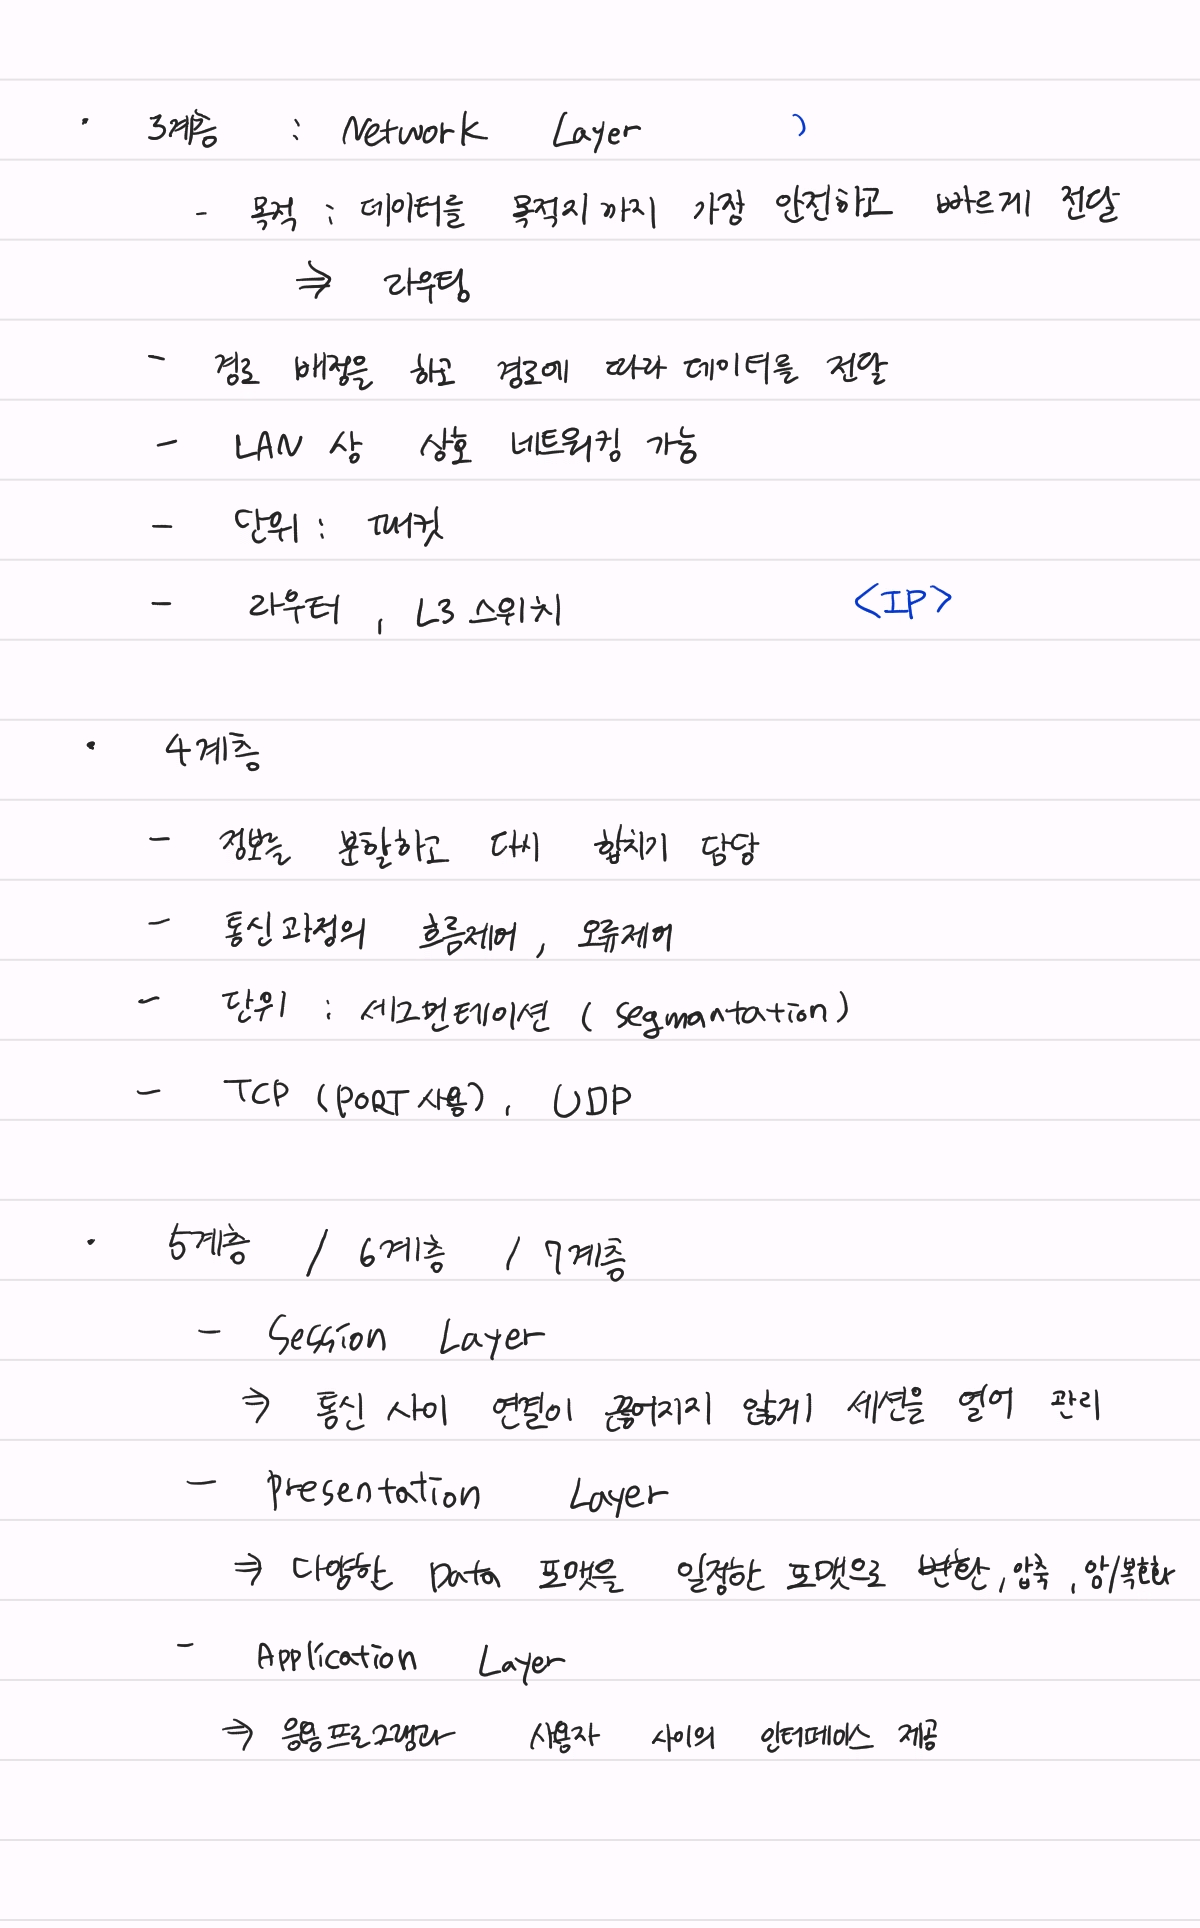 · 3계층 : Network Layer )
- 목적 : 데이터를 목적지까지 가장 안전하고 빠르게 전달
⇒ 라우팅
- 경로 배정을 하고 경로에 따라 데이터를 전달
- LAN 상 상호 네트워킹 가능
- 단위 : 패킷
- 라우터, L3 스위치 <IP>
· 4계층
- 정보를 분할하고 다시 합치기 담당
- 통신과정의 흐름제어, 오류제어
- 단위 : 세그먼테이션 ( segmantation )
- TCP (PORT 사용), UDP
· 5계층 / 6계층 / 7계층
- Session Layer
⇒ 통신 사이 연결이 끊어지지 않게 세션을 열어 관리
- Presentation Layer
⇒ 다양한 Data 포맷을 일정한 포맷으로 변환, 압축, 암/복호화
- Application Layer
⇒ 응용프로그램과 사용자 사이의 인터페이스 제공